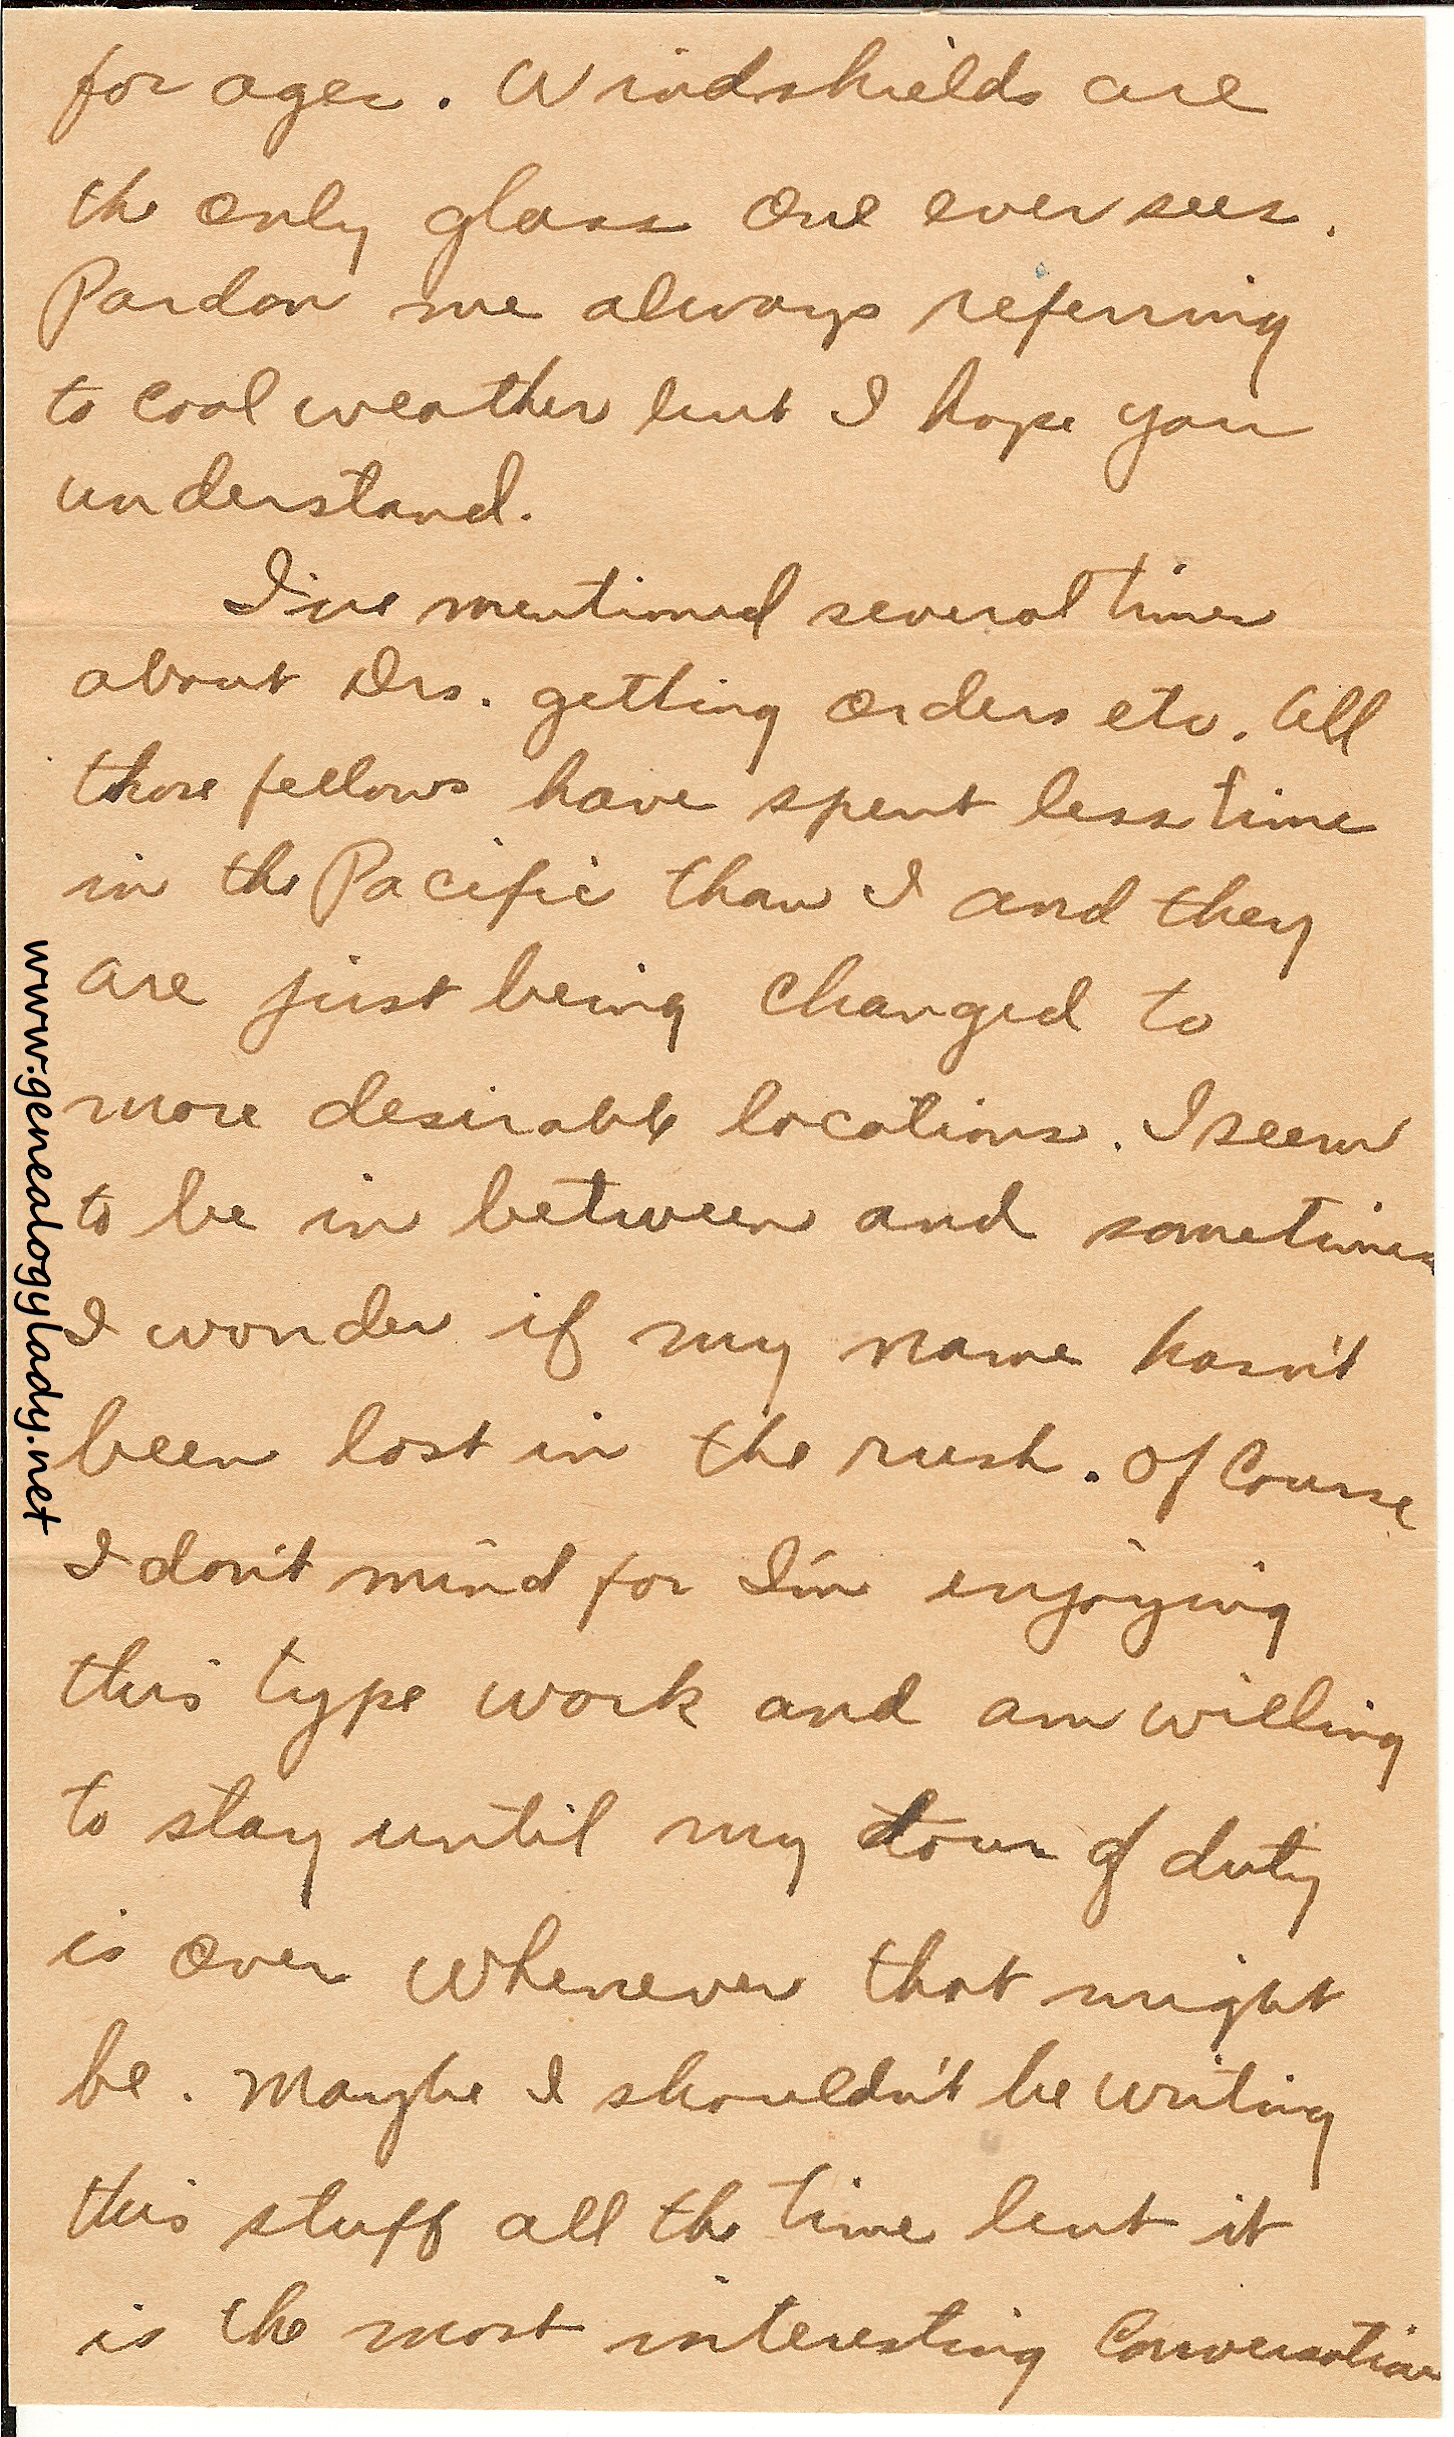 for ages. Windshields are
the only glass one ever sees.
Pardon me always referring
to cool weather but I hope you
understand.
I've mentioned several times
about Drs. getting orders etc. All
those fellows have spent less time
in the Pacific than I and they
are just being changed to
more desirable locations. I seem
to be in between and sometimes
I wonder if my name hasn't
been lost in the rush. Of course
I don't mind for I'm enjoying
this type work and am willing
to stay until my tour of duty
is over whenever that might
be. Maybe I shouldn't be writing
this stuff all the time but it
is the most interesting conversation
www.genealogylady.net